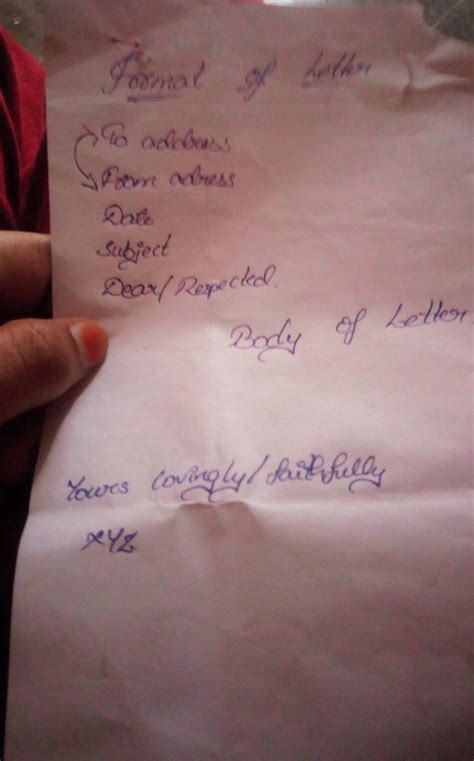 Format of Letter
To address
From adress
Date
Subject
Dear/Respected.
Body of Letter
Yours lovingly/faithfully
XYZ